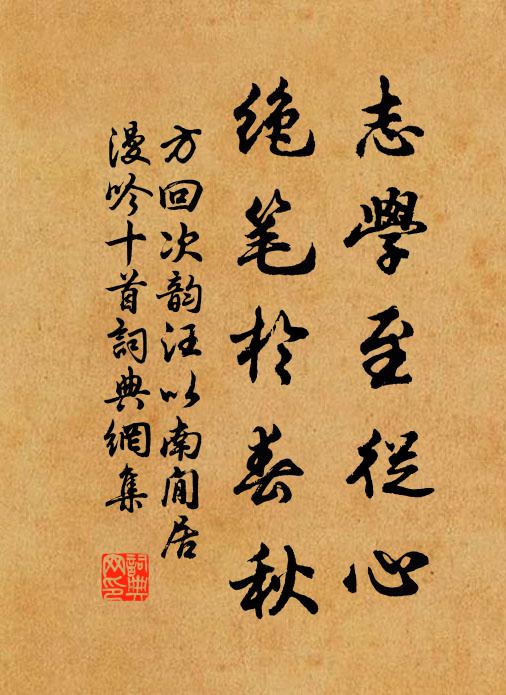 志學至從心
绝笔於春秋
方回次韵汪以南閒居
漫吟十首詞典網集
詞典网印